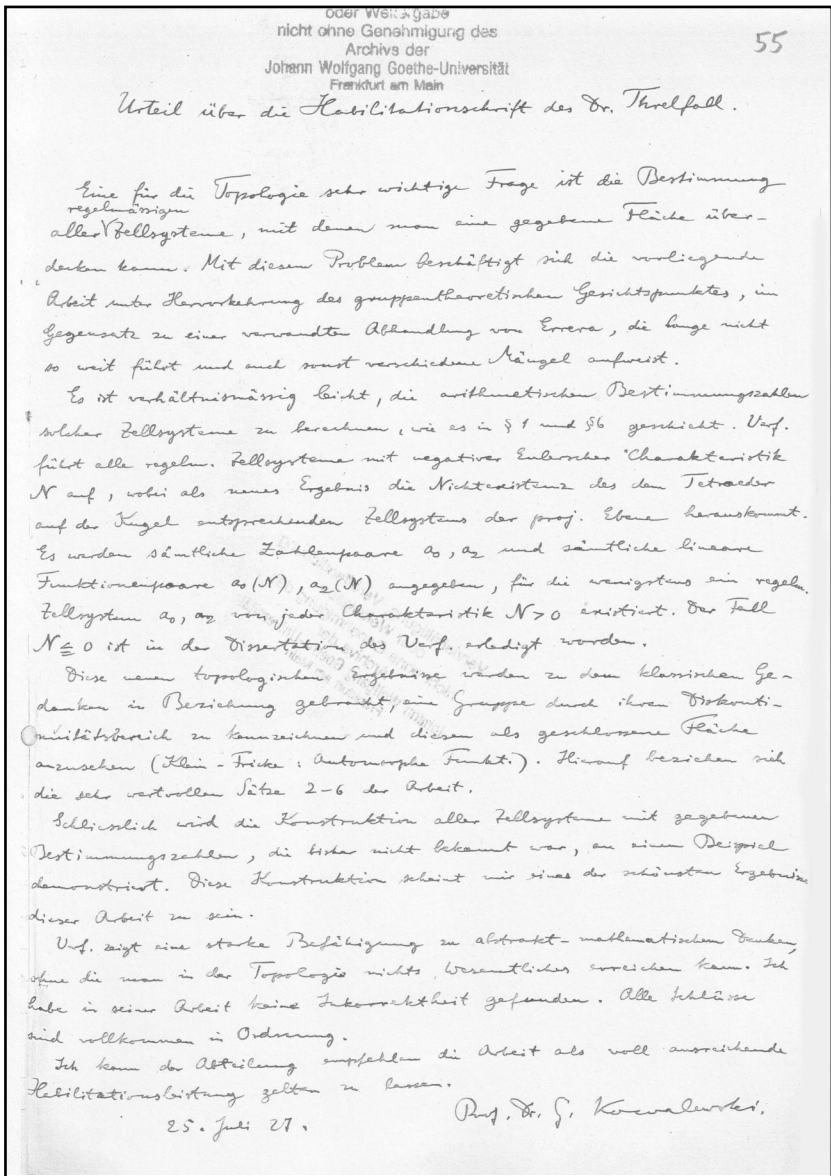 oder Weitergabe
nicht ohne Genehmigung des
Archivs der
Johann Wolfgang Goethe-Universität
Frankfurt am Main
55
Urteil über die Habilitationsschrift des Dr. Threlfall.
Eine für die Topologie sehr wichtige Frage ist die Bestimmung
regelmässigen
aller Zellsysteme, mit denen man eine gegebene Fläche über-
decken kann. Mit diesem Problem beschäftigt sich die vorliegende
Arbeit unter Hervorkehrung des gruppentheoretischen Gesichtspunktes, im
Gegensatz zu einer verwandten Abhandlung von Errera, die lange nicht
so weit führt und auch sonst verschiedene Mängel aufweist.
Es ist verhältnismässig leicht, die arithmetischen Bestimmungszahlen
solcher Zellsysteme zu berechnen, wie es in § 1 und § 6 geschieht. Verf.
führt alle regelm. Zellsysteme mit negativer Eulerscher Charakteristik
N auf, wobei als neues Ergebnis die Nichtexistenz des dem Tetraeder
auf der Kugel entsprechenden Zellsystems der proj. Ebene herauskommt.
Es werden sämtliche Zahlenpaare a₀, a₂ und sämtliche lineare
Funktionenpaare a₀(N), a₂(N) angegeben, für die wenigstens ein regelm.
Zellsystem a₀, a₂ von jeder Charakteristik N > 0 existiert. Der Fall
N ≦ 0 ist in der Dissertation des Verf. erledigt worden.
Diese neuen topologischen Ergebnisse werden zu dem klassischen Ge-
danken in Beziehung gebracht, eine Gruppe durch ihren Diskonti-
nuitätsbereich zu kennzeichnen und diesen als geschlossene Fläche
anzusehen (Klein-Fricke: Automorphe Funkt.). Hierauf beziehen sich
die sehr wertvollen Sätze 2-6 der Arbeit.
Schliesslich wird die Konstruktion aller Zellsysteme mit gegebenen
Bestimmungszahlen, die bisher nicht bekannt war, an einem Beispiel
demonstriert. Diese Konstruktion scheint mir eines der schönsten Ergebnisse
dieser Arbeit zu sein.
Verf. zeigt eine starke Befähigung zu abstrakt-mathematischem Denken,
ohne die man in der Topologie nichts Wesentliches erreichen kann. Ich
habe in seiner Arbeit keine Inkorrektheit gefunden. Alle Schlüsse
sind vollkommen in Ordnung.
Ich kann der Abteilung empfehlen die Arbeit als voll ausreichende
Habilitationsleistung gelten zu lassen.
25. Juli 27.
Prof. Dr. G. Kowalewski.